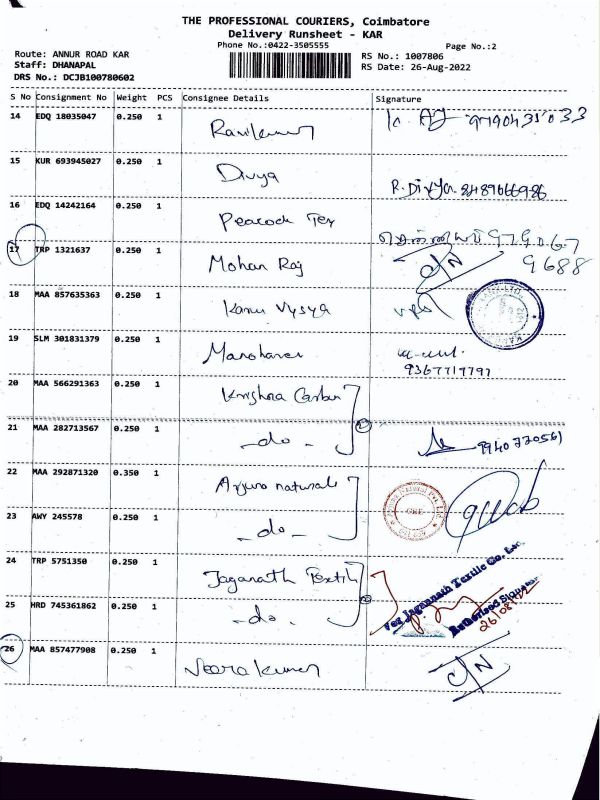 THE PROFESSIONAL COURIERS, Coimbatore
Delivery Runsheet - KAR
Phone No.:0422-3505555
Page No.:2
Route: ANNUR ROAD KAR
RS No.: 1007806
Staff: DHANAPAL
RS Date: 26-Aug-2022
DRS No.: DCJB100780602
S No Consignment No Weight PCS Consignee Details Signature
14 EDQ 18035047 0.250 1 Ravikumar
15 KUR 693945027 0.250 1 Divya R. Divya. 8489666986
16 EDQ 14242164 0.250 1 Peacock Tex
17 TRP 1321637 0.250 1 Mohan Raj D/N 9688
18 MAA 857635363 0.250 1 Karur Vysya
19 SLM 301831379 0.250 1 Manoharan 9367717797
20 MAA 566291363 0.250 1 Krishna Carbon
21 MAA 282713567 0.250 1 -do- 9940720561
22 MAA 292871320 0.350 1 Arjuna naturals
23 AWY 245578 0.250 1 -do-
24 TRP 5751350 0.250 1 Jaganath Textile For Jagannath Textile Co. Ltd.
25 HRD 745361862 0.250 1 -do- Authorised Signator 26/08/22
26 MAA 857477908 0.250 1 Veerakumar D/N